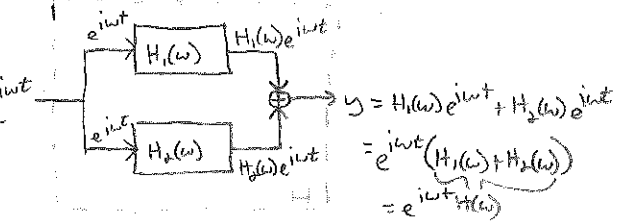 e^{iωt}
H₁(ω)
H₁(ω)e^{iωt}
iωt
e^{iωt}
H₂(ω)
H₂(ω)e^{iωt}
y = H₁(ω)e^{iωt} + H₂(ω)e^{iωt}
= e^{iωt}(H₁(ω) + H₂(ω))
= e^{iωt} H(ω)
H